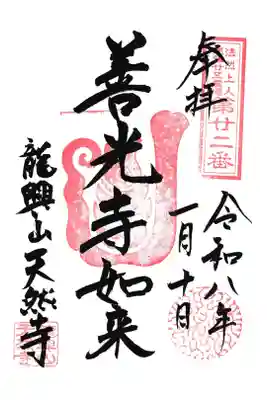 奉拝
法然上人
第廿二番
令和八年
一月十日
善光寺如来
龍興山天然寺